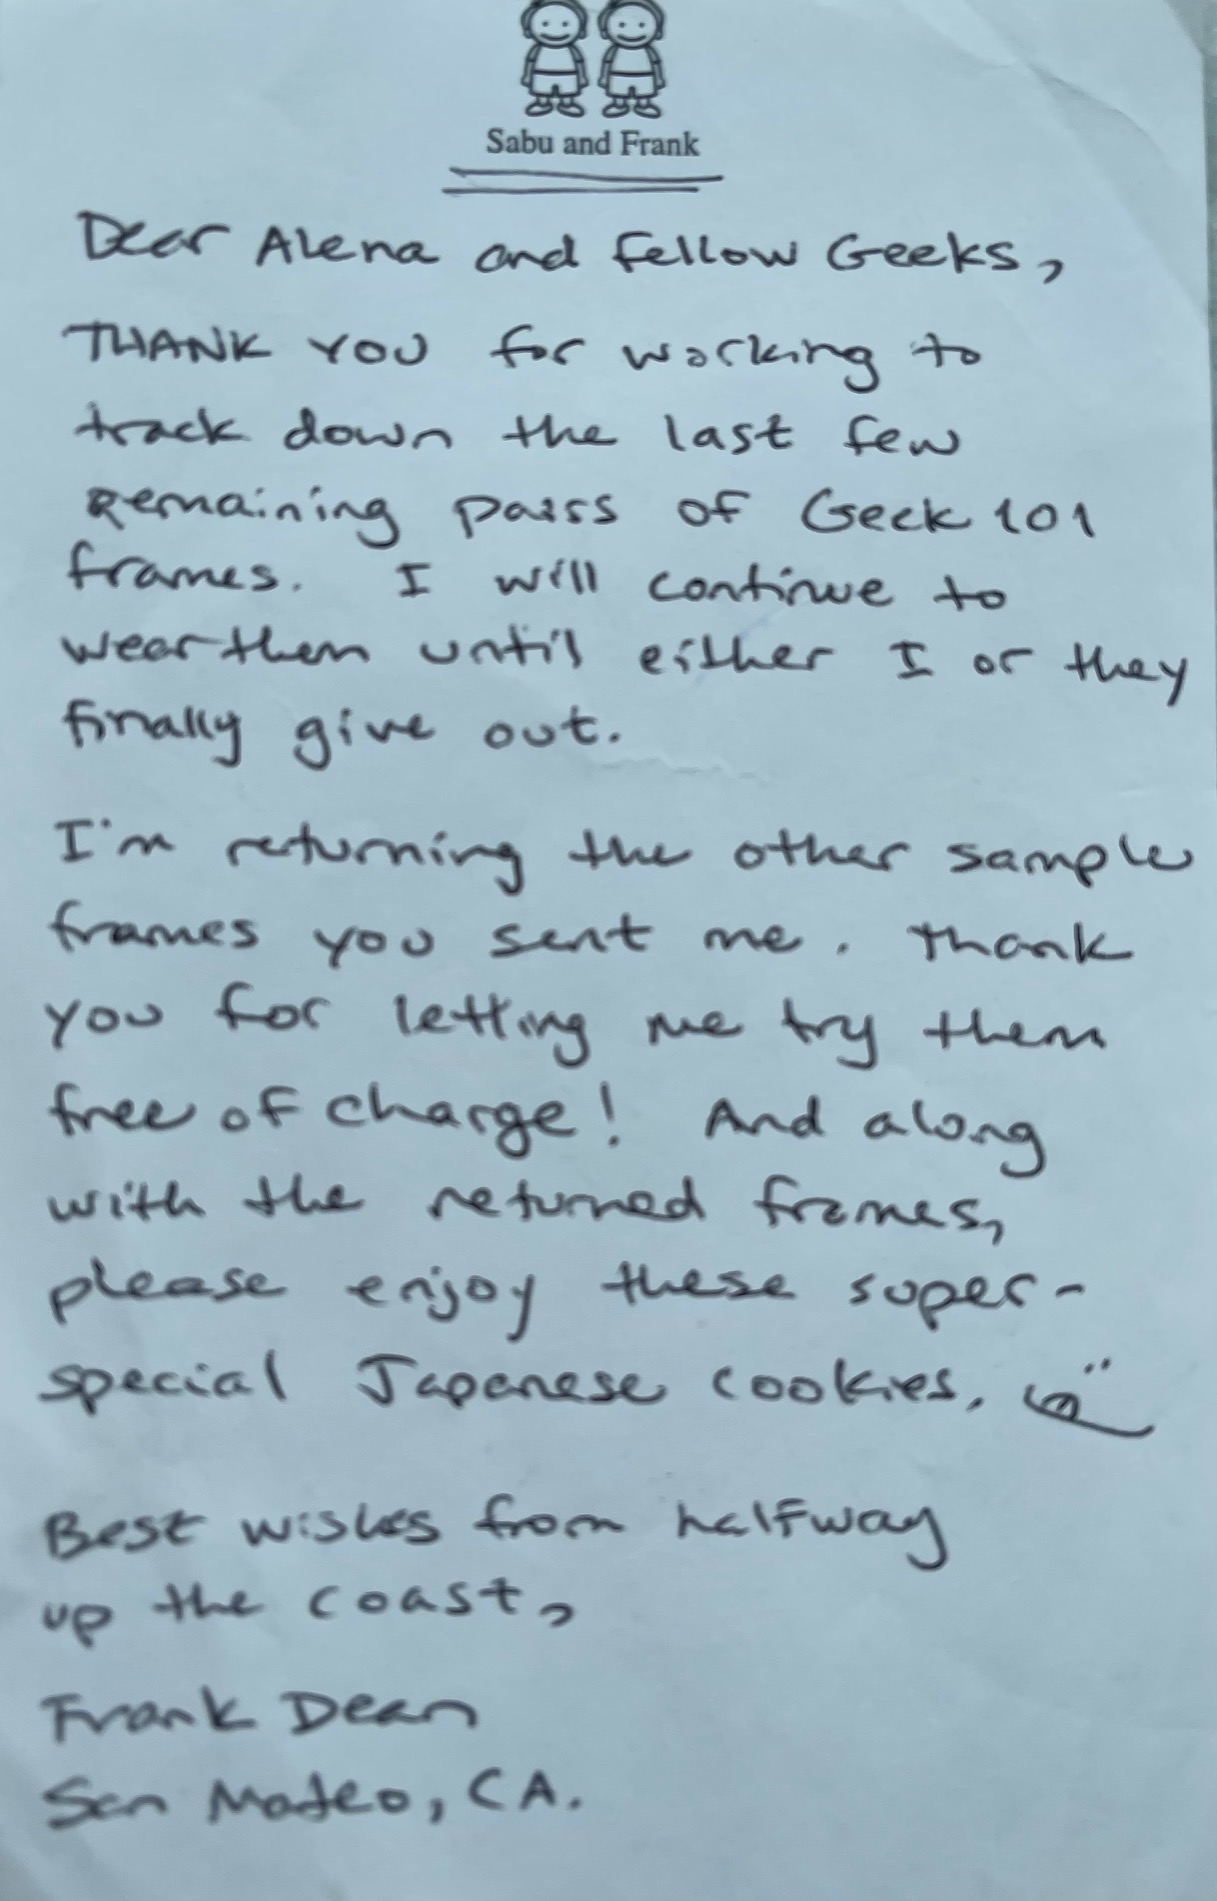 Sabu and Frank
Dear Alena and Fellow Geeks,
THANK YOU for working to
track down the last few
remaining pairs of Geek 101
frames. I will continue to
wear them until either I or they
finally give out.
I'm returning the other sample
frames you sent me. Thank
you for letting me try them
free of charge! And along
with the returned frames,
please enjoy these super-
special Japanese cookies.
Best wishes from halfway
up the coast,
Frank Dean
San Mateo, CA.